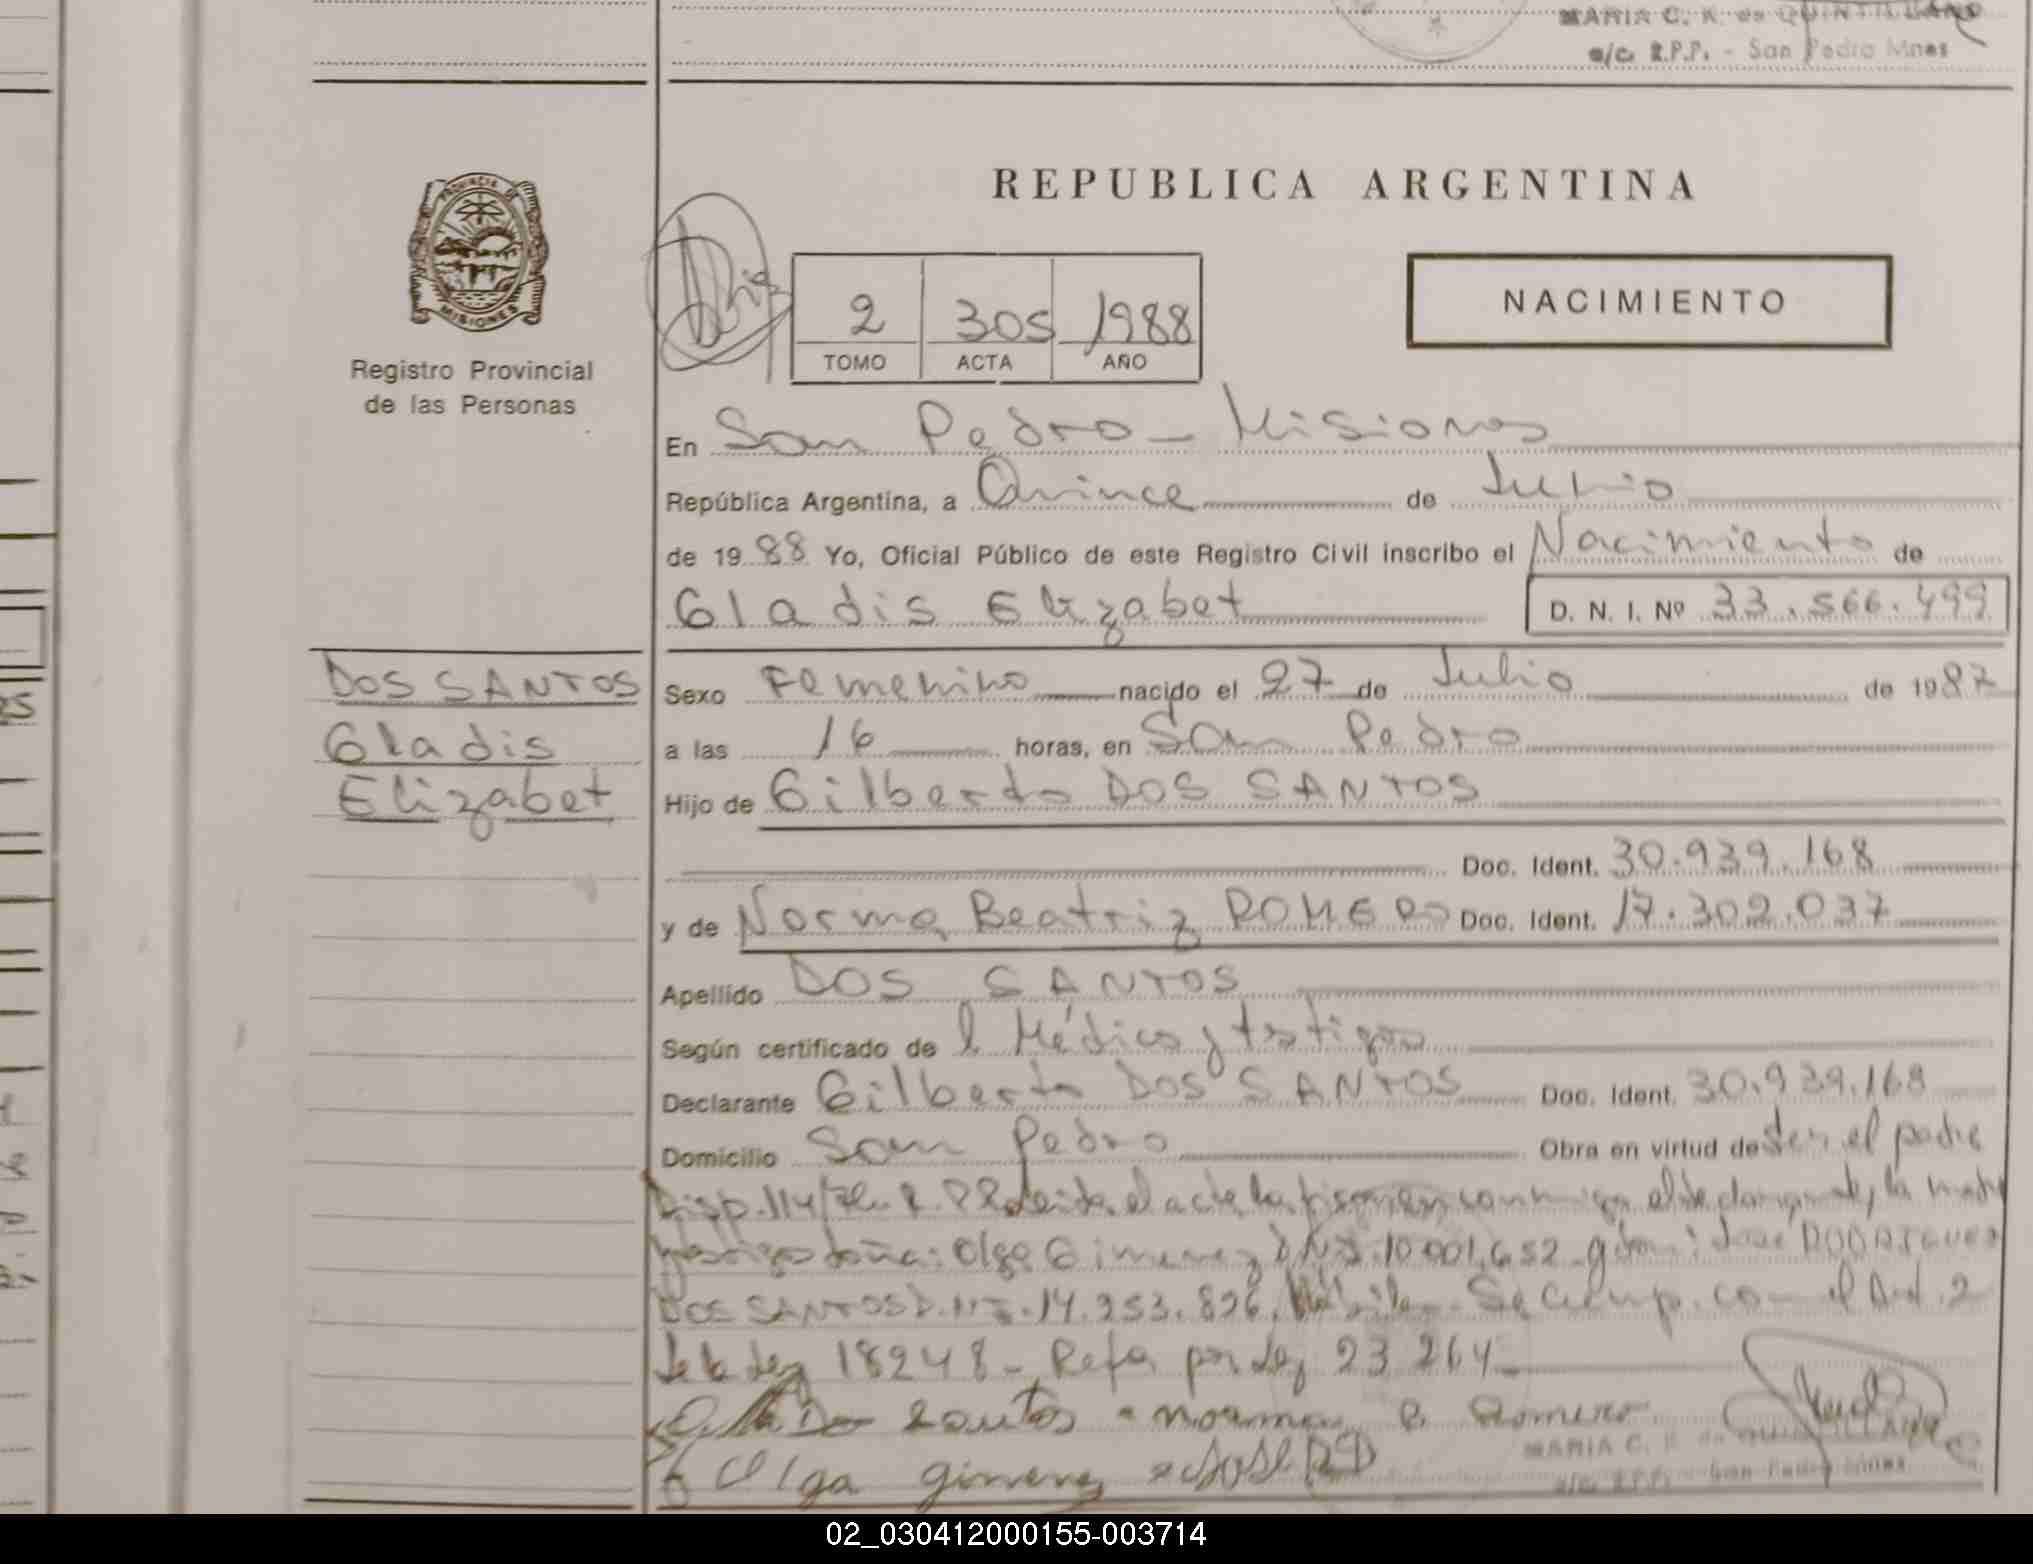 MARIA C. R. de QUINTILLANO
a/c. R.P.P. - San Pedro Mnes
PROVINCIA DE
MISIONES
Registro Provincial
de las Personas
REPUBLICA ARGENTINA
NACIMIENTO
2 305 1988
TOMO ACTA AÑO
En San Pedro - Misiones
República Argentina, a Quince de Julio
de 1988 Yo, Oficial Público de este Registro Civil inscribo el Nacimiento de
Gladis Elizabet D. N. I. Nº 33.566.499
DOS SANTOS
Gladis
Elizabet
Sexo Femenino nacido el 27 de Julio de 1987
a las 16 horas, en San Pedro
Hijo de Gilberto DOS SANTOS
Doc. Ident. 30.939.168
y de Norma Beatriz ROMERO Doc. Ident. 17.302.037
Apellido DOS SANTOS
Según certificado de l Médico y testigos
Declarante Gilberto DOS SANTOS Doc. Ident. 30.939.168
Domicilio San Pedro Obra en virtud de Ser el padre
Disp. 114/ R.P.P Leida el acta la firman conmigo el declarante, la madre
y testigo doña: Olga Gimenez D.N.I. 10.001.652 y don: José RODRIGUES
DOS SANTOS D.N.I. 14.253.826. Se cump. con el Art. 2
de la Ley 18248 - Refa por Ley 23264
Dos Santos norma B. Romero
Olga gimenez José RD
MARIA C. R. de QUINTILLANO
a/c. R.P.P. San Pedro Mnes
02_030412000155-003714